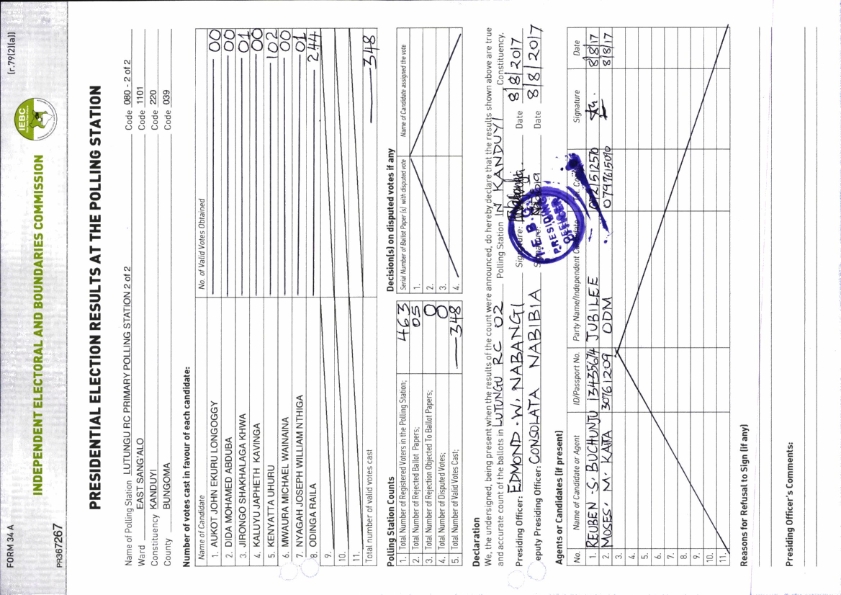 FORM 34 A
[r.79(2)(a)]
IEBC
INDEPENDENT ELECTORAL AND BOUNDARIES COMMISSION
PR367267
PRESIDENTIAL ELECTION RESULTS AT THE POLLING STATION
Name of Polling Station LUTUNGU RC PRIMARY POLLING STATION 2 of 2 Code 080 - 2 of 2
Ward EAST SANG'ALO Code 1101
Constituency KANDUYI Code 220
County BUNGOMA Code 039
Number of votes cast in favour of each candidate:
Name of Candidate No. of Valid Votes Obtained
1. AUKOT JOHN EKURU LONGOGGY 00
2. DIDA MOHAMED ABDUBA 00
3. JIRONGO SHAKHALAGA KHWA 01
4. KALUYU JAPHETH KAVINGA 00
5. KENYATTA UHURU 102
6. MWAURA MICHAEL WAINAINA 00
7. NYAGAH JOSEPH WILLIAM NTHIGA 01
8. ODINGA RAILA 244
9.
10.
11.
Total number of valid votes cast 348
Polling Station Counts
1. Total Number of Registered Voters in the Polling Station; 463
2. Total Number of Rejected Ballot Papers; 05
3. Total Number of Rejection Objected To Ballot Papers; 0
4. Total Number of Disputed Votes; 0
5. Total Number of Valid Votes Cast; 348
Decision(s) on disputed votes if any
Serial Number of Ballot Paper (s) with disputed vote Name of Candidate assigned the vote
1.
2.
3.
4.
Declaration
We, the undersigned, being present when the results of the count were announced, do hereby declare that the results shown above are true
and accurate count of the ballots in LUTUNGU RC 02 Polling Station IN KANDUYI Constituency.
Presiding Officer: EDMOND .W. NABANGI Signature: Date 8/8/2017
eputy Presiding Officer: CONSOLATA NABIBIA Date 8/8/2017
I.E.B.C
PRESIDING
OFFICER
Agents or Candidates (if present)
No. Name of Candidate or Agent ID/Passport No. Party Name/Independent Signature Date
1. REUBEN .S. BUCHUNJU 13435674 JUBILEE 8/8/17
2. MOSES . M. 30761209 ODM 8/8/17
3.
4.
5.
6.
7.
8.
9.
10.
11.
Reasons for Refusal to Sign (if any)
Presiding Officer's Comments: